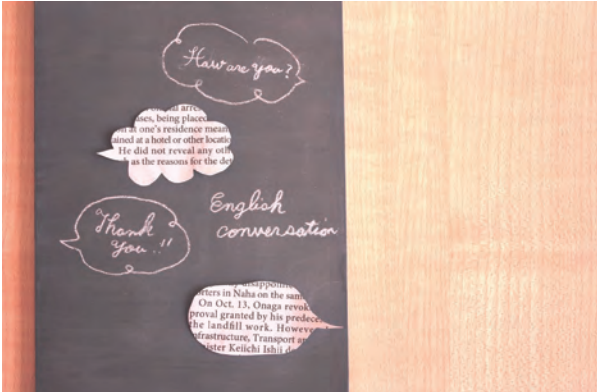 How are you?
arre
uses, being placed
at one's residence mean
ained at a hotel or other locatio
He did not reveal any oth
as the reasons for the det
Thank
you!!
English
conversation
disappoin
orters in Naha on the sam
On Oct. 13, Onaga revok
proval granted by his predece
the landfill work. Howeve
nfrastructure, Transport an
nister Keiichi Ishii de